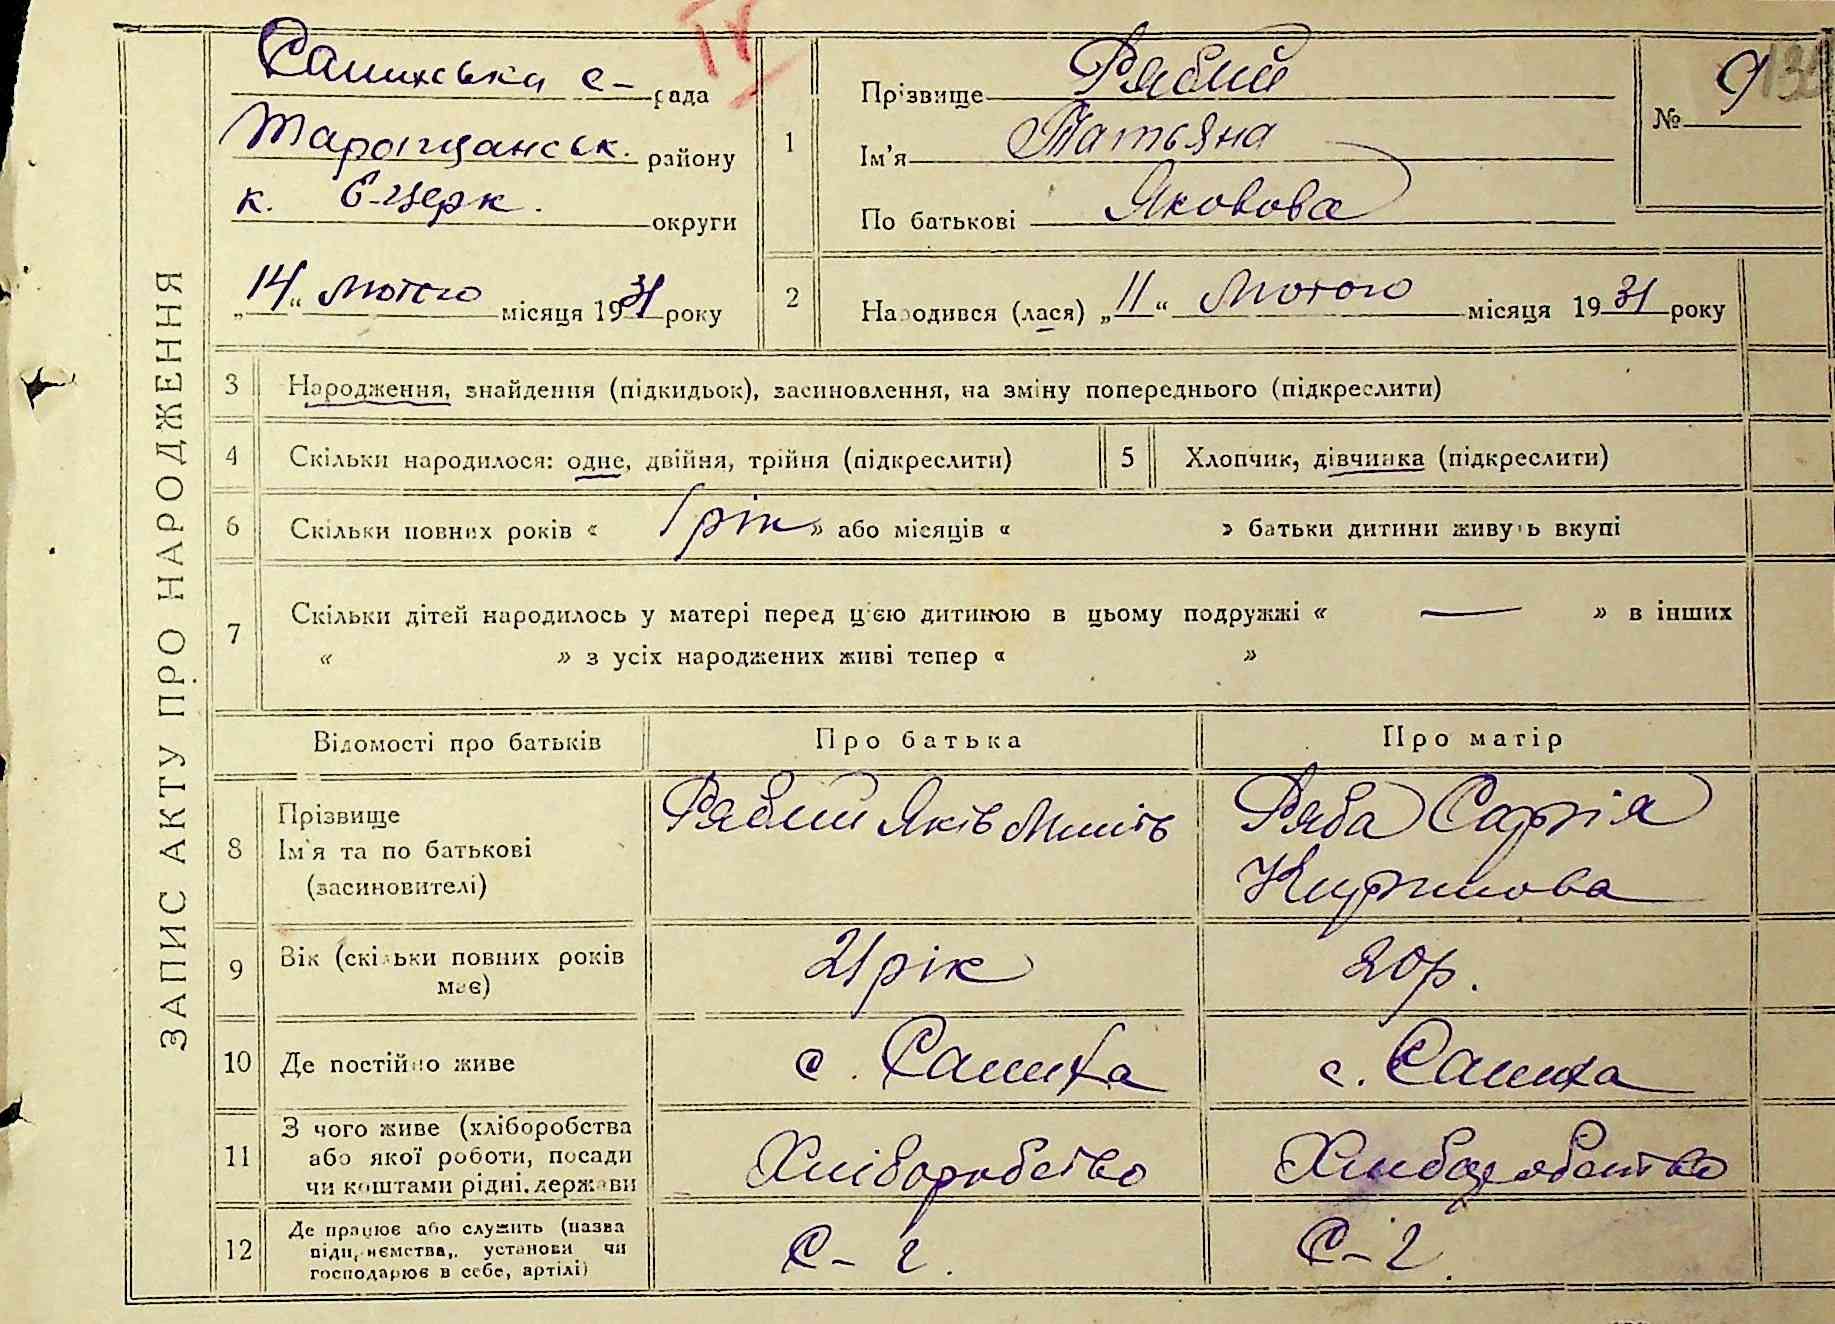 ЗАПИС АКТУ ПРО НАРОДЖЕННЯ
IV
Салиська с- рада
Таращанськ. району
к. Б-церк. округи
„14“ лютого місяця 1931 року
1
Прізвище Рябий
Ім'я Татьяна
По батькові Яковова
№ 9
2
Народився (лася) „11“ лютого місяця 1931 року
3 Народження, знайдення (підкидьок), засиновлення, на зміну попереднього (підкреслити)
4 Скільки народилося: одне, двійня, трійня (підкреслити)
5 Хлопчик, дівчинка (підкреслити)
6 Скільки повних років « 1 рік » або місяців « » батьки дитини живуть вкупі
7 Скільки дітей народилось у матері перед цією дитиною в цьому подружжі « — » в інших
« » з усіх народжених живі тепер « »
Відомості про батьків
Про батька
Про матір
8
Прізвище
Ім'я та по батькові
(засиновителі)
Рябий Яків
Ряба Софія
9
Вік (скільки повних років
має)
21 рік
20 р.
10 Де постійно живе
с.
с.
11
З чого живе (хліборобства
або якої роботи, посади
чи коштами рідні, держави
Хліборобство
Хлиборобство
12
Де працює або служить (назва
підприємства, установи чи
господарює в себе, артілі)
С-г.
С-г.